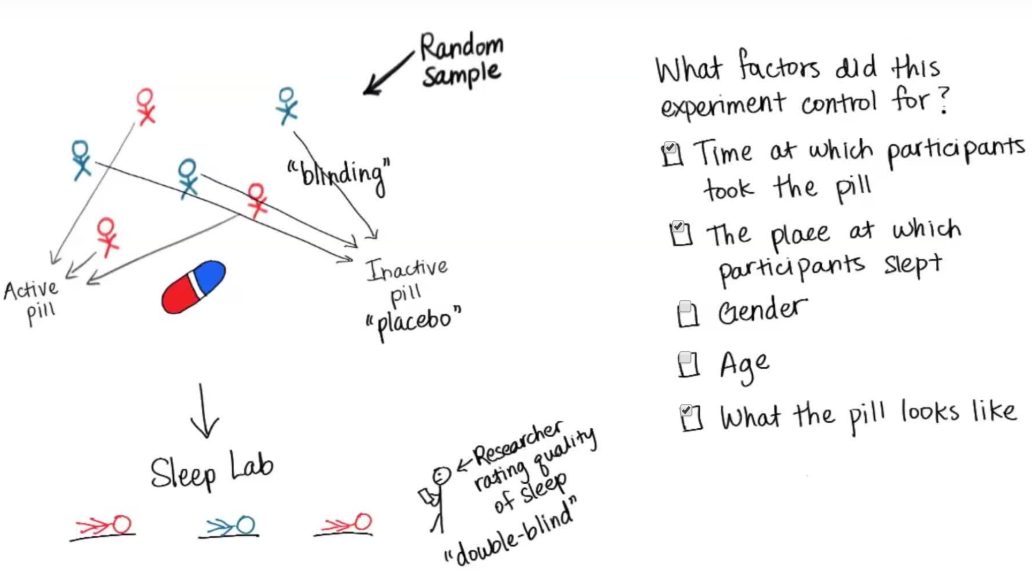 Random
Sample
"blinding"
Active
pill
Inactive
pill
"placebo"
Sleep Lab
Researcher
rating quality
of sleep
"double-blind"
What factors did this
experiment control for?
Time at which participants
took the pill
The place at which
participants slept
Gender
Age
What the pill looks like